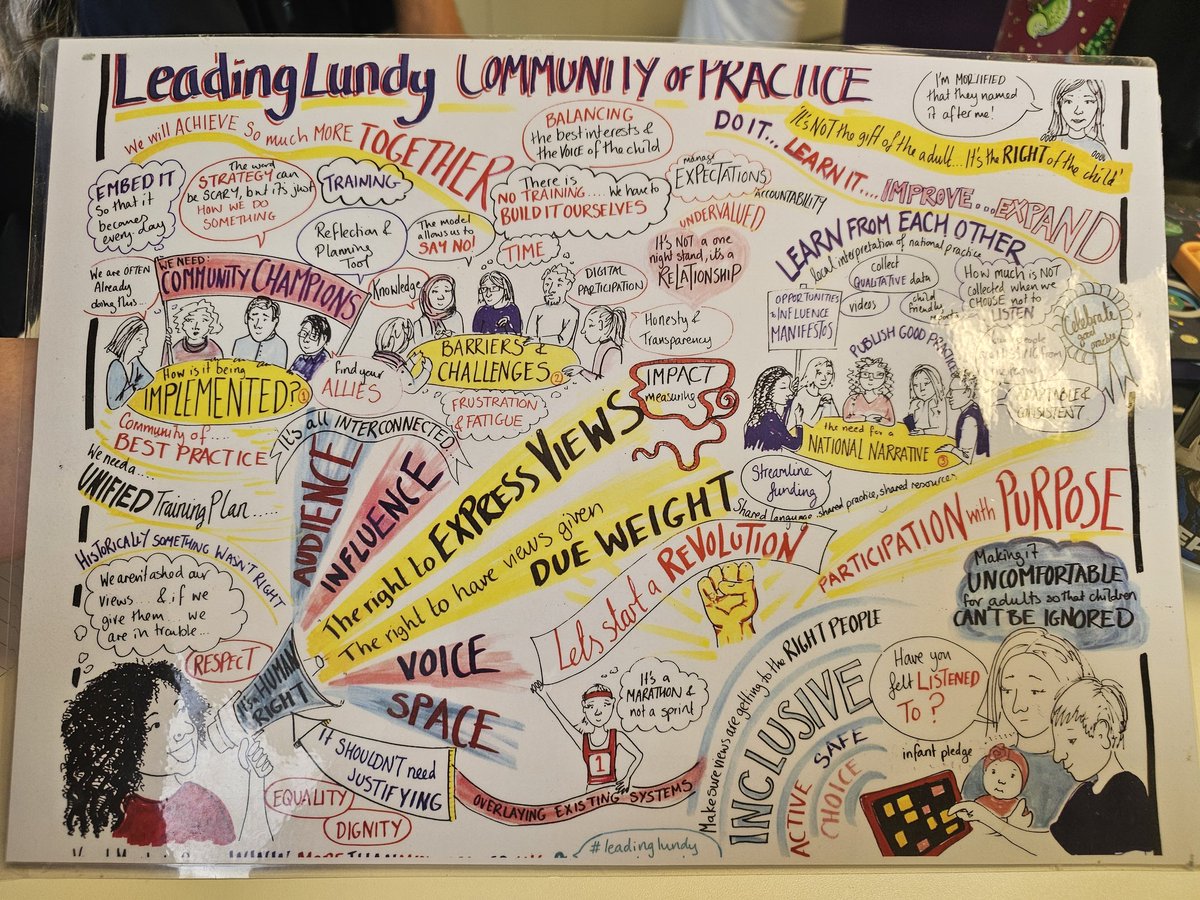 Leading Lundy COMMUNITY OF PRACTICE
I'm MORTIFIED
that they named
it after me!
We will ACHIEVE So much MORE TOGETHER
BALANCING
the best interests &
the VOICE of the child
DO IT... LEARN IT.... IMPROVE... EXPAND
'It's NOT the gift of the adult... It's the RIGHT of the child'
EMBED IT
So that it
becomes
every-day
The word
STRATEGY can
be SCARY, but it's just
HOW WE DO
SOMETHING
TRAINING
Reflection &
Planning
Tool
The model
allows us to
SAY NO!
There is
NO TRAINING..... We have to
BUILD IT OURSELVES
manage
EXPECTATIONS
ACCOUNTABILITY
UNDERVALUED
It's NOT a one
night stand, it's a
RELATIONSHIP
TIME
We are OFTEN
Already
doing this...
WE NEED:
COMMUNITY CHAMPIONS
Knowledge
DIGITAL
PARTICIPATION
Honesty &
Transparency
LEARN FROM EACH OTHER
local interpretation of national practice
collect
QUALITATIVE data
videos
child
friendly
How much is NOT
collected when we
CHOOSE not to
LISTEN
OPPORTUNITIES
& INFLUENCE
MANIFESTOS
PUBLISH GOOD PRACTICE
Celebrate
good
practice
ADAPTABLE &
CONSISTENT
How is it being
IMPLEMENTED? 1
find your
ALLIES
BARRIERS &
CHALLENGES 2
FRUSTRATION
& FATIGUE
IMPACT
measuring
the need for a
NATIONAL NARRATIVE 3
Community of....
BEST PRACTICE
It's all INTERCONNECTED
We need a...
UNIFIED Training Plan.....
Streamline
funding
Shared language, shared practice, shared resources
PARTICIPATION with PURPOSE
AUDIENCE
INFLUENCE
The right to EXPRESS VIEWS
The right to have views given
DUE WEIGHT
VOICE
SPACE
HISTORICALLY SOMETHING WASN'T RIGHT
We aren't asked our
views.... & if we
give them... we
are in trouble...
RESPECT
It's a HUMAN
RIGHT
Lets start a REVOLUTION
It's a
MARATHON &
not a sprint
1
Making it
UNCOMFORTABLE
for adults so that children
CAN'T BE IGNORED
Make sure views are getting to the RIGHT PEOPLE
INCLUSIVE
SAFE
ACTIVE
CHOICE
Have you
felt LISTENED
To?
infant pledge
IT SHOULDN'T need
JUSTIFYING
EQUALITY
DIGNITY
OVERLAYING EXISTING SYSTEMS
#leadinglundy